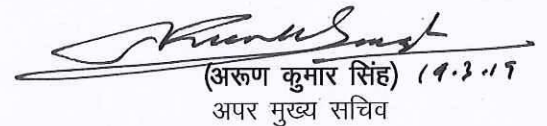 (अरूण कुमार सिंह) 19.3.19
अपर मुख्य सचिव